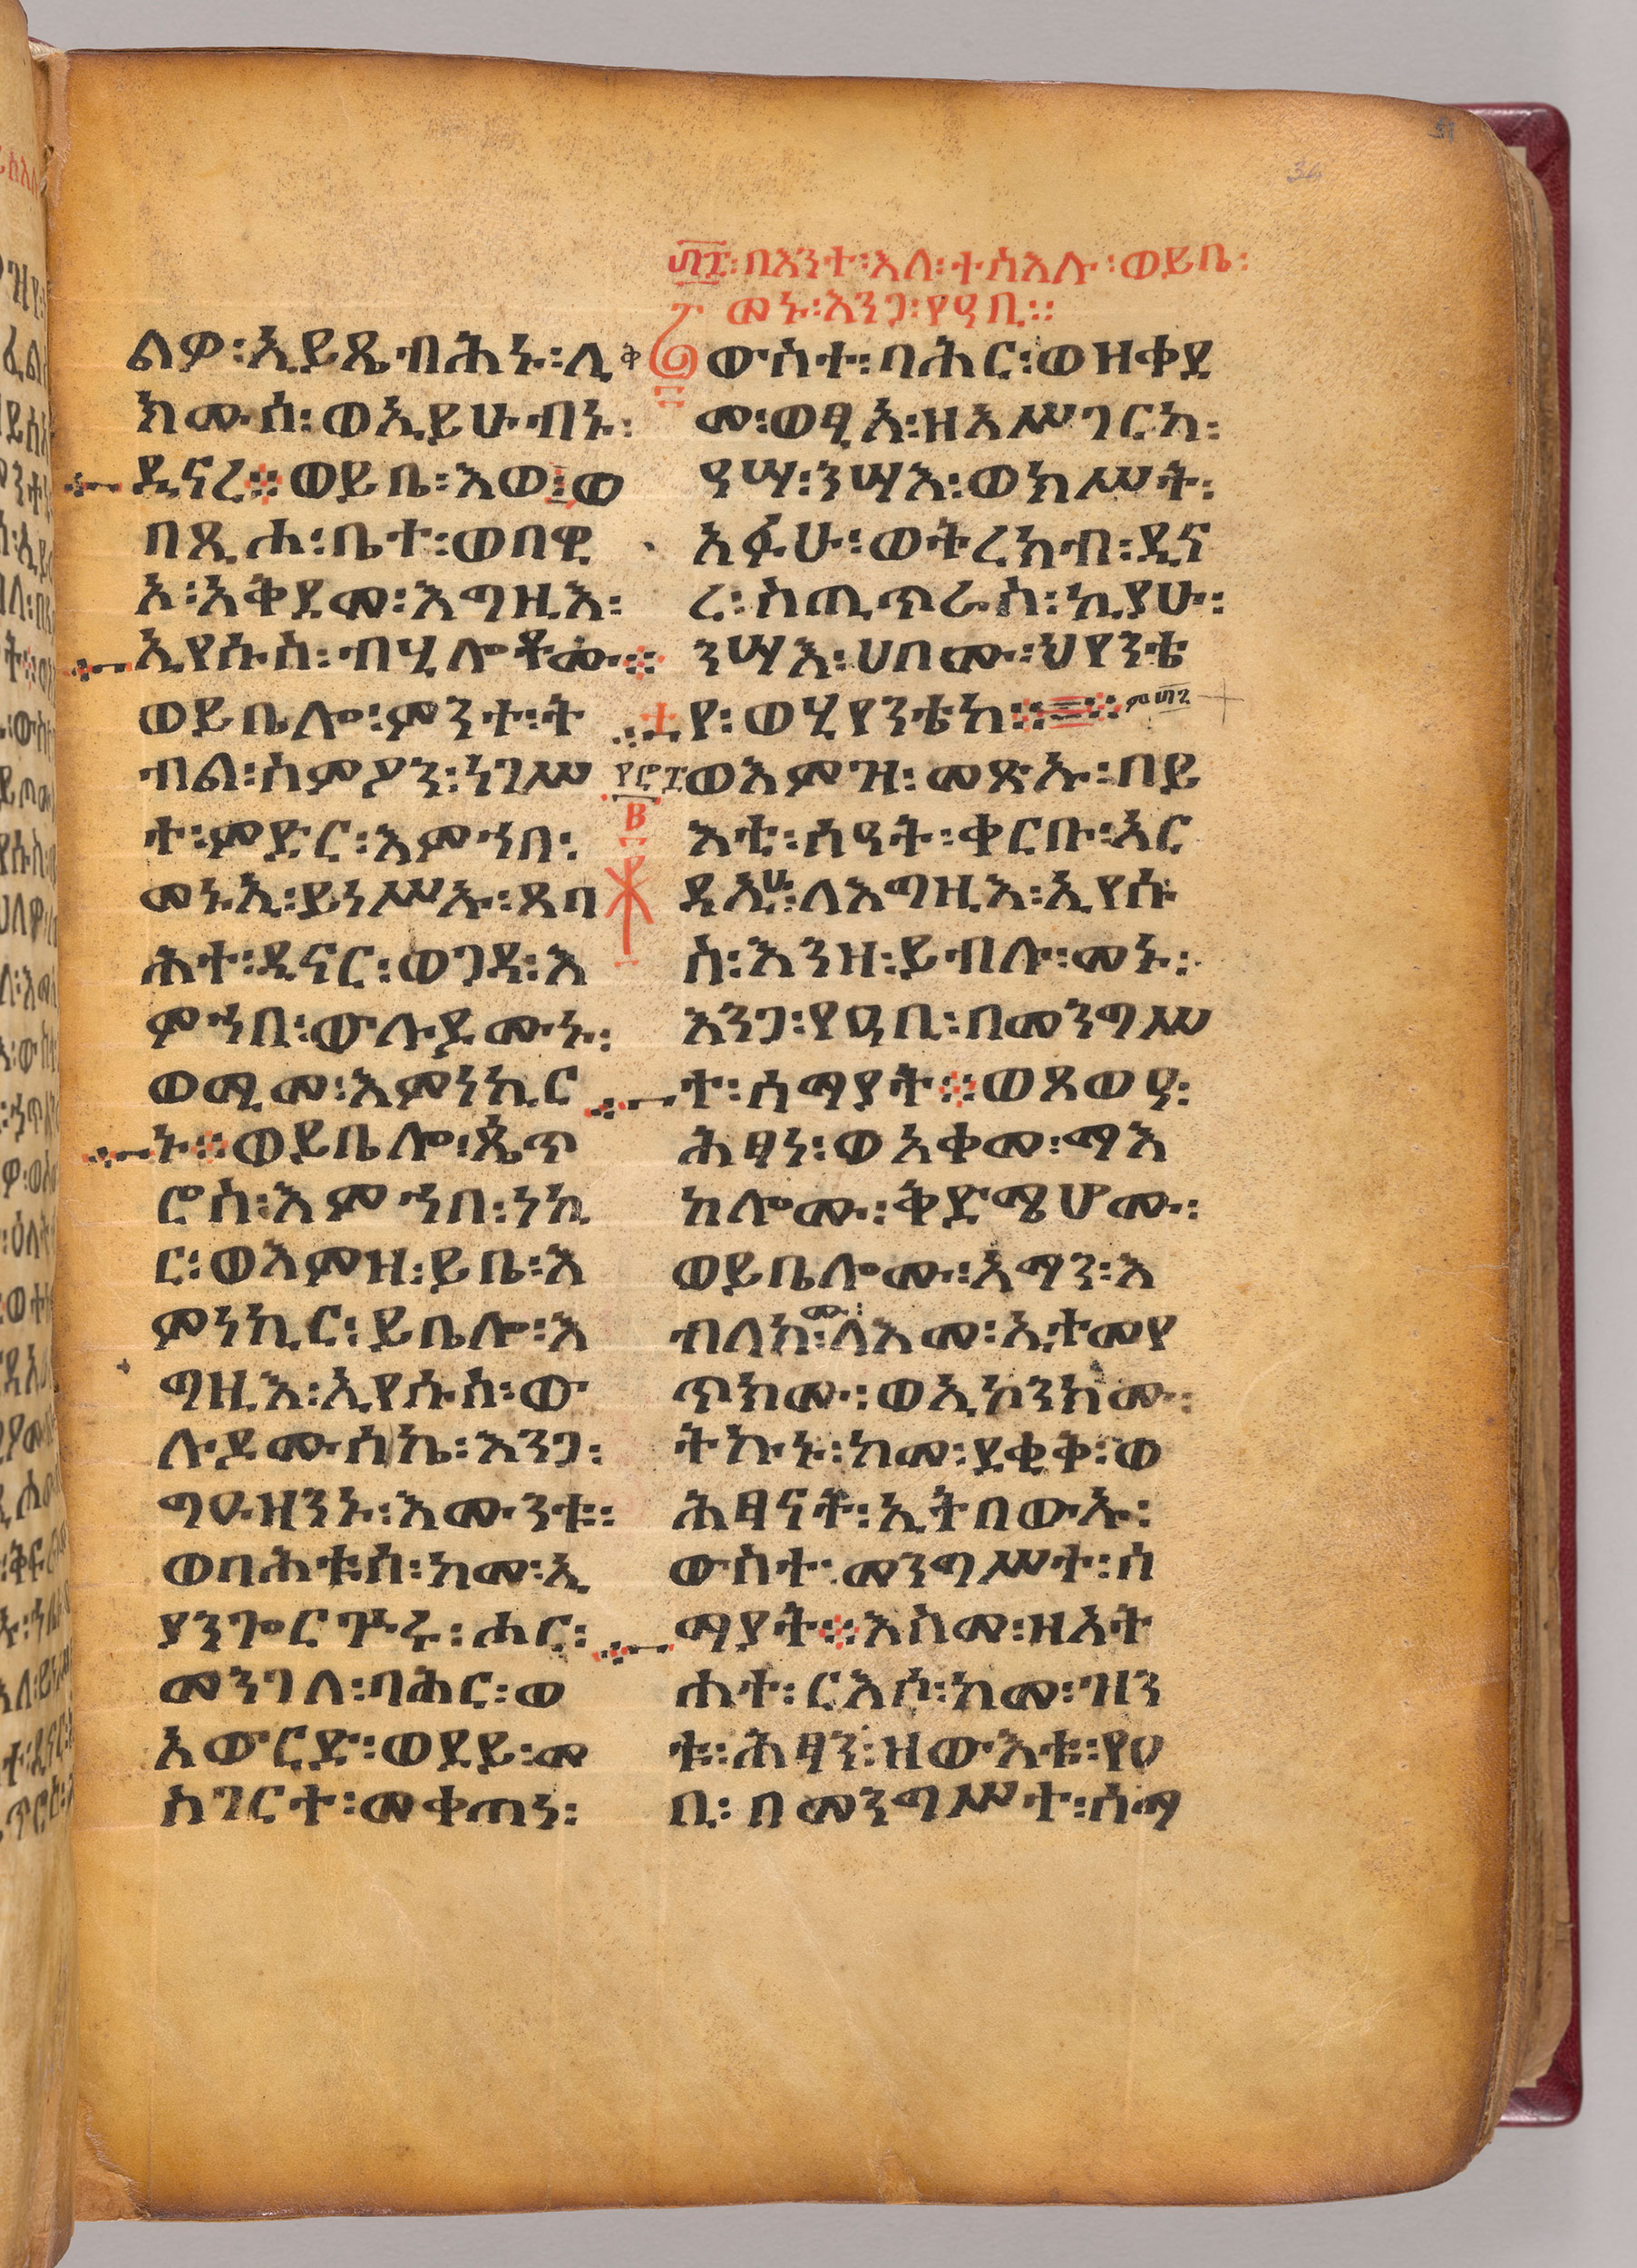 ፴፮፡በእንተ፡እለ፡ተስእሉ፡ወይቤ፡
መኑ፡እንጋ፡የዓቢ።
ልዎ፡ኢይጼብሕኑ፡ሊቅ
ክሙሰ፡ወኢይሁብኑ፡
ዲናረ፨ወይቤ፡እወ፡ወ
በጺሖ፡ቤተ፡ወበዊ
ኦ፡አቅደመ፡እግዚእ፡
ኢየሱስ፡ብሂሎቶሙ፨
ወይቤሎ፡ምንተ፡ት
ብል፡ስምዖን፡ነገሥ
ተ፡ምድር፡እምኀበ፡
መኑኢ፡ይነሥኡ፡ጸባ
ሕተ፡ዲናር፡ወጋዳ፡እ
ምኀበ፡ውሉደሙኑ፡
ወሚመ፡እምነኪር
ኑ፨ወይቤሎ፡ጴጥ
ሮስ፡እምኀበ፡ነኪ
ር፡ወእምዝ፡ይቤ፡እ
ምነኪር፡ይቤሎ፡እ
ግዚእ፡ኢየሱስ፡ው
ሉደሙሰኬ፡እንጋ፡
ግዑዝንኑ፡እሙንቱ፡
ወባሕቱሰ፡ከመ፡ኢ
ያንጐርጕሩ፡ሖር፡
መንገለ፡ባሕር፡ወ
አውርድ፡ወደይ፡መ
ስገርተ፡መቀጠነ፡
ውስተ፡ባሕር፡ወዘቀደ
መ፡ወፂአ፡ዘአሥገርከ፡
ዓሣ፡ንሣእ፡ወክሥት፡
አፉሁ፡ወትረክብ፡ዲና
ረ፡ስጢጥራስ፡ኪያሁ፡
ንሣእ፡ሀበሙ፡ህየንቴ
የ፡ወሂየንቴከ፨
ወእምዝ፡መጽኡ፡በይ
እቲ፡ሰዓት፡ቀርቡ፡አር
ዳኢሁ፡ለእግዚእ፡ኢየሱ
ስ፡እንዘ፡ይብሉ፡መኑ፡
እንጋ፡የዓቢ፡በመንግሥ
ተ፡ሰማያት፨ወጸወዓ፡
ሕፃነ፡ወአቀመ፡ማእ
ከሎሙ፡ቅድሜሆሙ፡
ወይቤሎሙ፡አማን፡እ
ብለክሙ፡ለእመ፡ኢተመየ
ጥክሙ፡ወኢኮንክሙ፡
ትኩኑ፡ከመ፡ደቂቅ፡ወ
ሕፃናት፡ኢትበውኡ፡
ውስተ፡መንግሥተ፡ሰ
ማያት፨እስመ፡ዘአት
ሐተ፡ርእሶ፡ከመ፡ዝን
ቱ፡ሕፃን፡ዝውእቱ፡የዐ
ቢ፡በመንግሥተ፡ሰማ
36